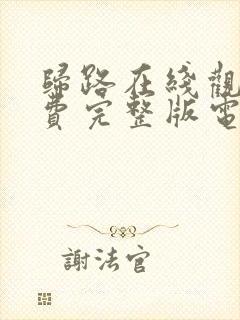 歸路在綫觀
費完整版電
謝法官